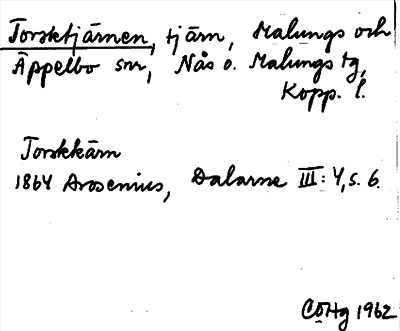 Torsktjärnen, tjärn, Malungs och
Äppelbo snr, Nås o. Malungs tg,
Kopp. l.
Torskkärn
1864 Arosenius, Dalarne III: 4, s. 6.
CÖHg 1962